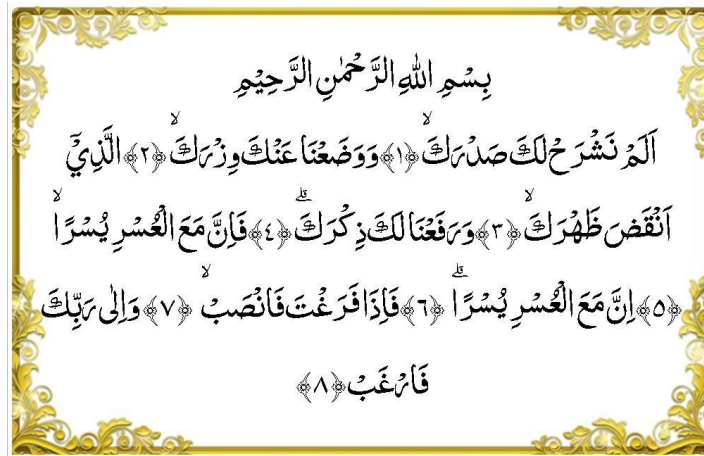 بِسْمِ اللّٰهِ الرَّحْمٰنِ الرَّحِيْمِ
اَلَمْ نَشْرَحْ لَكَ صَدْرَكَۙ ﴿١﴾ وَوَضَعْنَا عَنْكَ وِزْرَكَۙ ﴿٢﴾ الَّذِيْٓ
اَنْقَضَ ظَهْرَكَۙ ﴿٣﴾ وَرَفَعْنَا لَكَ ذِكْرَكَۗ ﴿٤﴾ فَاِنَّ مَعَ الْعُسْرِ يُسْرًاۙ
﴿٥﴾ اِنَّ مَعَ الْعُسْرِ يُسْرًاۗ ﴿٦﴾ فَاِذَا فَرَغْتَ فَانْصَبْۙ ﴿٧﴾ وَاِلٰى رَبِّكَ
فَارْغَبْ ﴿٨﴾